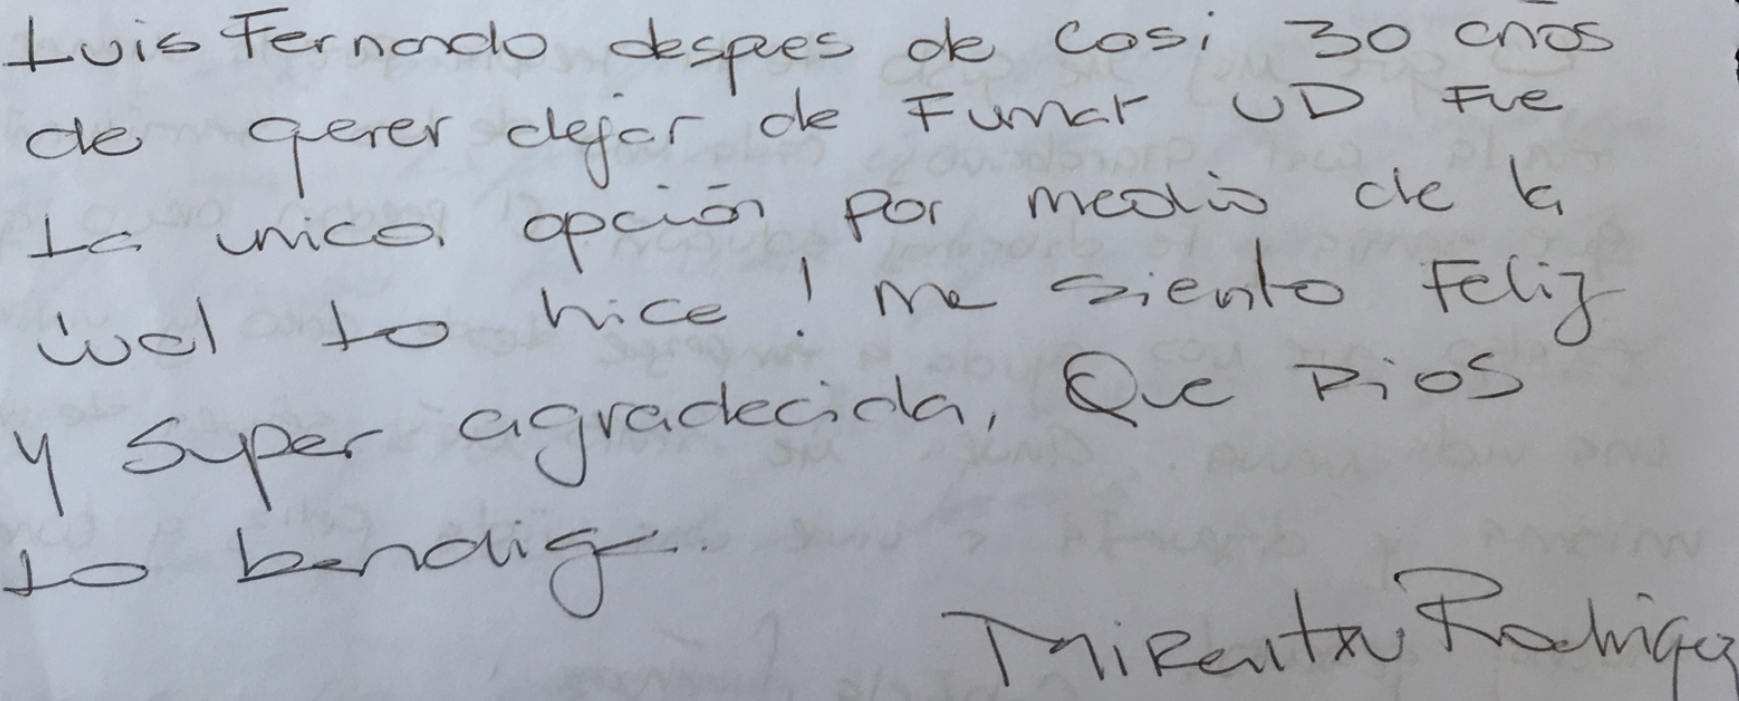 Luis Fernando despues de casi 30 años
de qerer dejar de Fumar UD Fue
La unica opción por medio de la
wal lo hice! Me siento Feliz
y super agradecida, Que Dios
lo bendiga..
Mirentxu Rodriguez